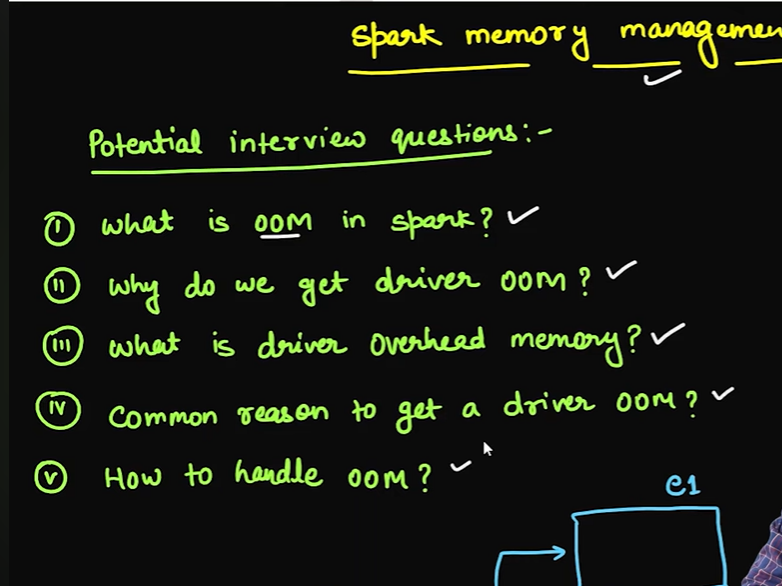 Spark memory
Potential interview questions:-
I what is OOM in spark?
II why do we get driver OOM?
III what is driver overhead memory?
IV Common reason to get a driver OOM?
V How to handle OOM?
e1